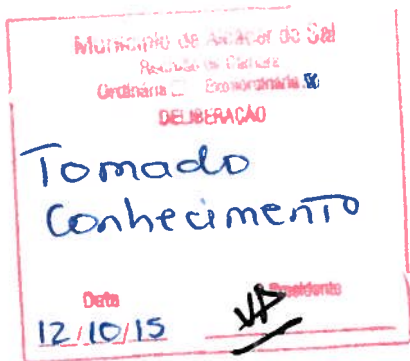 Município de Alcácer do Sal
Reunião de Câmara
Ordinária Extraordinária
DELIBERAÇÃO
Tomado
Conhecimento
Data
Presidente
12/10/15